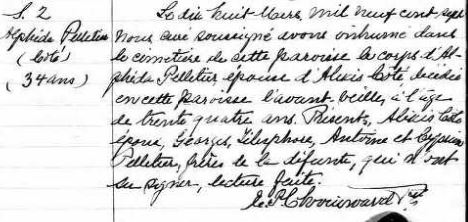 S. 2
Alphéda Pelletier
(Côté)
(34 ans)
Le dix huit Mars, mil neuf cent sept
Nous curé soussigné avons inhumé dans
le cimetière de cette paroisse le corps d'Al-
phéda Pelletier épouse d'Alexis Côté décédée
en cette paroisse l'avant-veille, à l'âge
de trente quatre ans. Présents, Alexis Côté
époux, Georges, Télesphore, Antoine et Cyprien
Pelletier, frères de la défunte, qui n'ont
su signer, lecture faite.